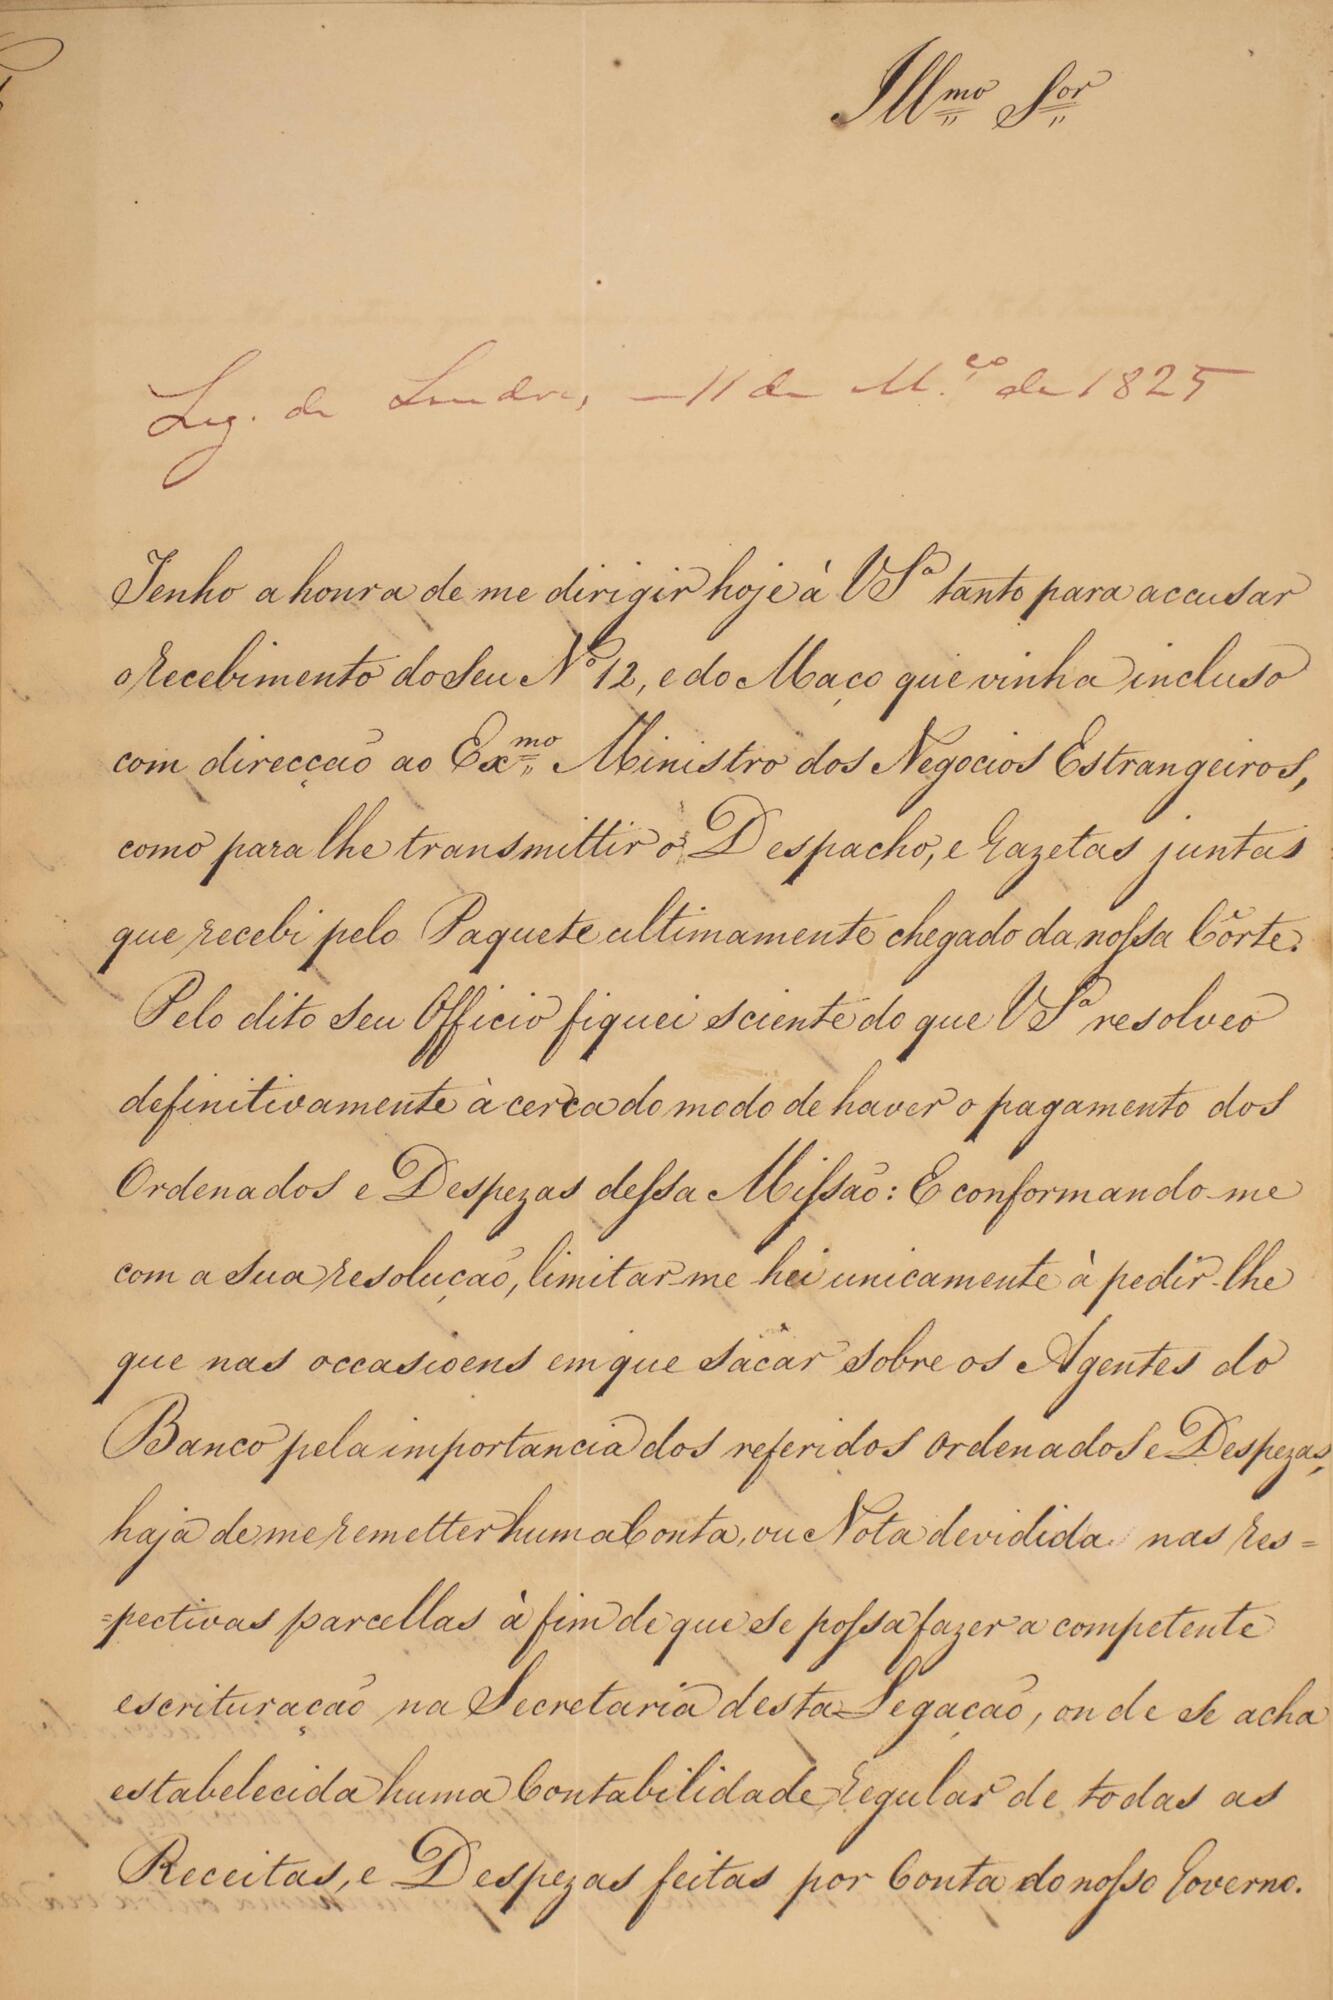 Illmo Sor
Leg. de Londres, — 11 de M.ço de 1825
Tenho a honra de me dirigir hoje à VSª tanto para accusar
o recebimento do seu Nº 12, e do Maço que vinha incluso
com direcção ao Exmo Ministro dos Negocios Estrangeiros,
como para lhe transmittir o Despacho, e Gazetas juntas
que recebi pelo Paquete ultimamente chegado da nossa Côrte.
Pelo dito seu Officio fiquei sciente do que VSª resolveo
definitivamente à cerca do modo de haver o pagamento dos
Ordenados e Despezas dessa Missão: E conformando-me
com a sua resolução, limitar-me hei unicamente à pedir-lhe
que nas occasioens em que sacar sobre os Agentes do
Banco pela importancia dos referidos Ordenados e Despezas,
haja de me remetter huma Conta, ou Nota devidida nas res=
=pectivas parcellas à fim de que se possa fazer a competente
escrituração na Secretaria desta Legação, onde se acha
estabelecida huma Contabilidade regular de todas as
Receitas, e Despezas feitas por Conta do nosso Governo.